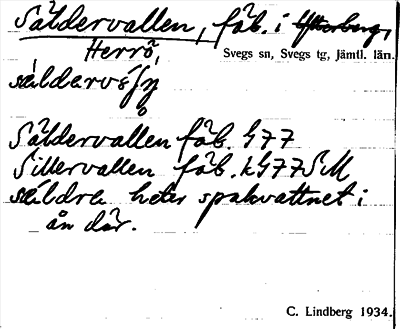 Säldervallen, fäb. i Ytterberg,
Herrö,
Svegs sn, Svegs tg, Jämtl. län.
Säldervallen fäb. G77
Sillervallen fäb. kG77SM
säldra heter spakvattnet i
ån där.
C. Lindberg 1934.